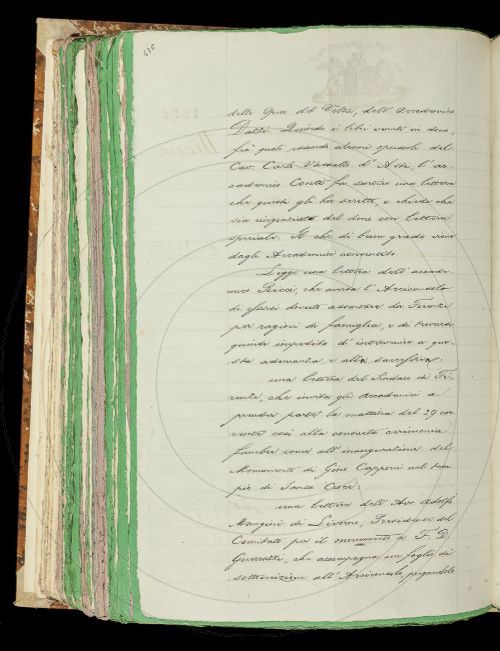 delle Opere del Volta, dell'Accademico
Dalla Quindi i libri venuti in dono,
fra' quali essendo alcuni opuscoli del
Cav. Carlo Vassallo d'Asti, l'ac-
cademico Conti fa sentire una lettera
che questi gli ha scritta, e chiede che
sia ringraziato del dono con lettera
speciale. Il che di buon grado vien
dagli Accademici concesso.
Leggo una lettera dell'accade-
mico Ricci, che avvisa l'Arciconsolo
di essersi dovuto assentare da Firenze
per ragioni di famiglia, e di trovarsi
quindi impedito d'intervenire a que-
sta adunanza, e alla successiva:
una lettera del Sindaco di Fi-
renze, che invita gli Accademici a
prender parte la mattina del 29 cor-
rente così alla consueta cerimonia
funebre come all'inaugurazione del
Monumento di Gino Capponi nel tem-
pio di Santa Croce:
una lettera dell'Avv. Adolfo
Mangini di Livorno, Presidente del
Comitato per il monumento a F. D.
Guerrazzi, che accompagna un foglio di
sottoscrizione all'Arciconsolo, pregandolo